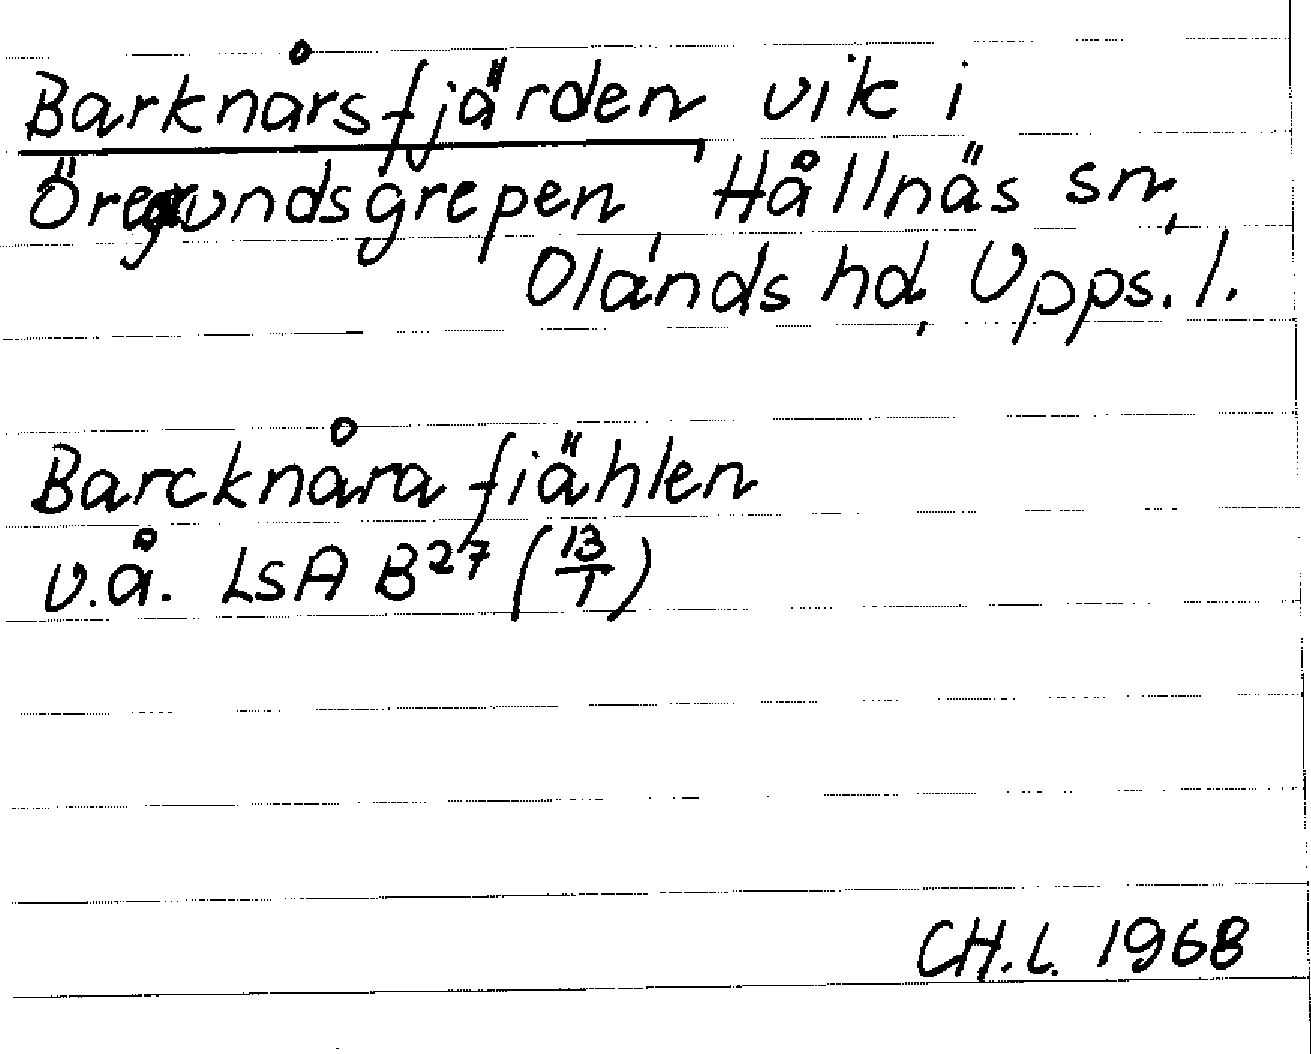 Barknårsfjärden, vik i
Öregrundsgrepen, Hållnäs sn,
Olands hd, Upps. l.
Barcknåra fiählen
v.å. LSA B27 (13/1)
CH.L. 1968